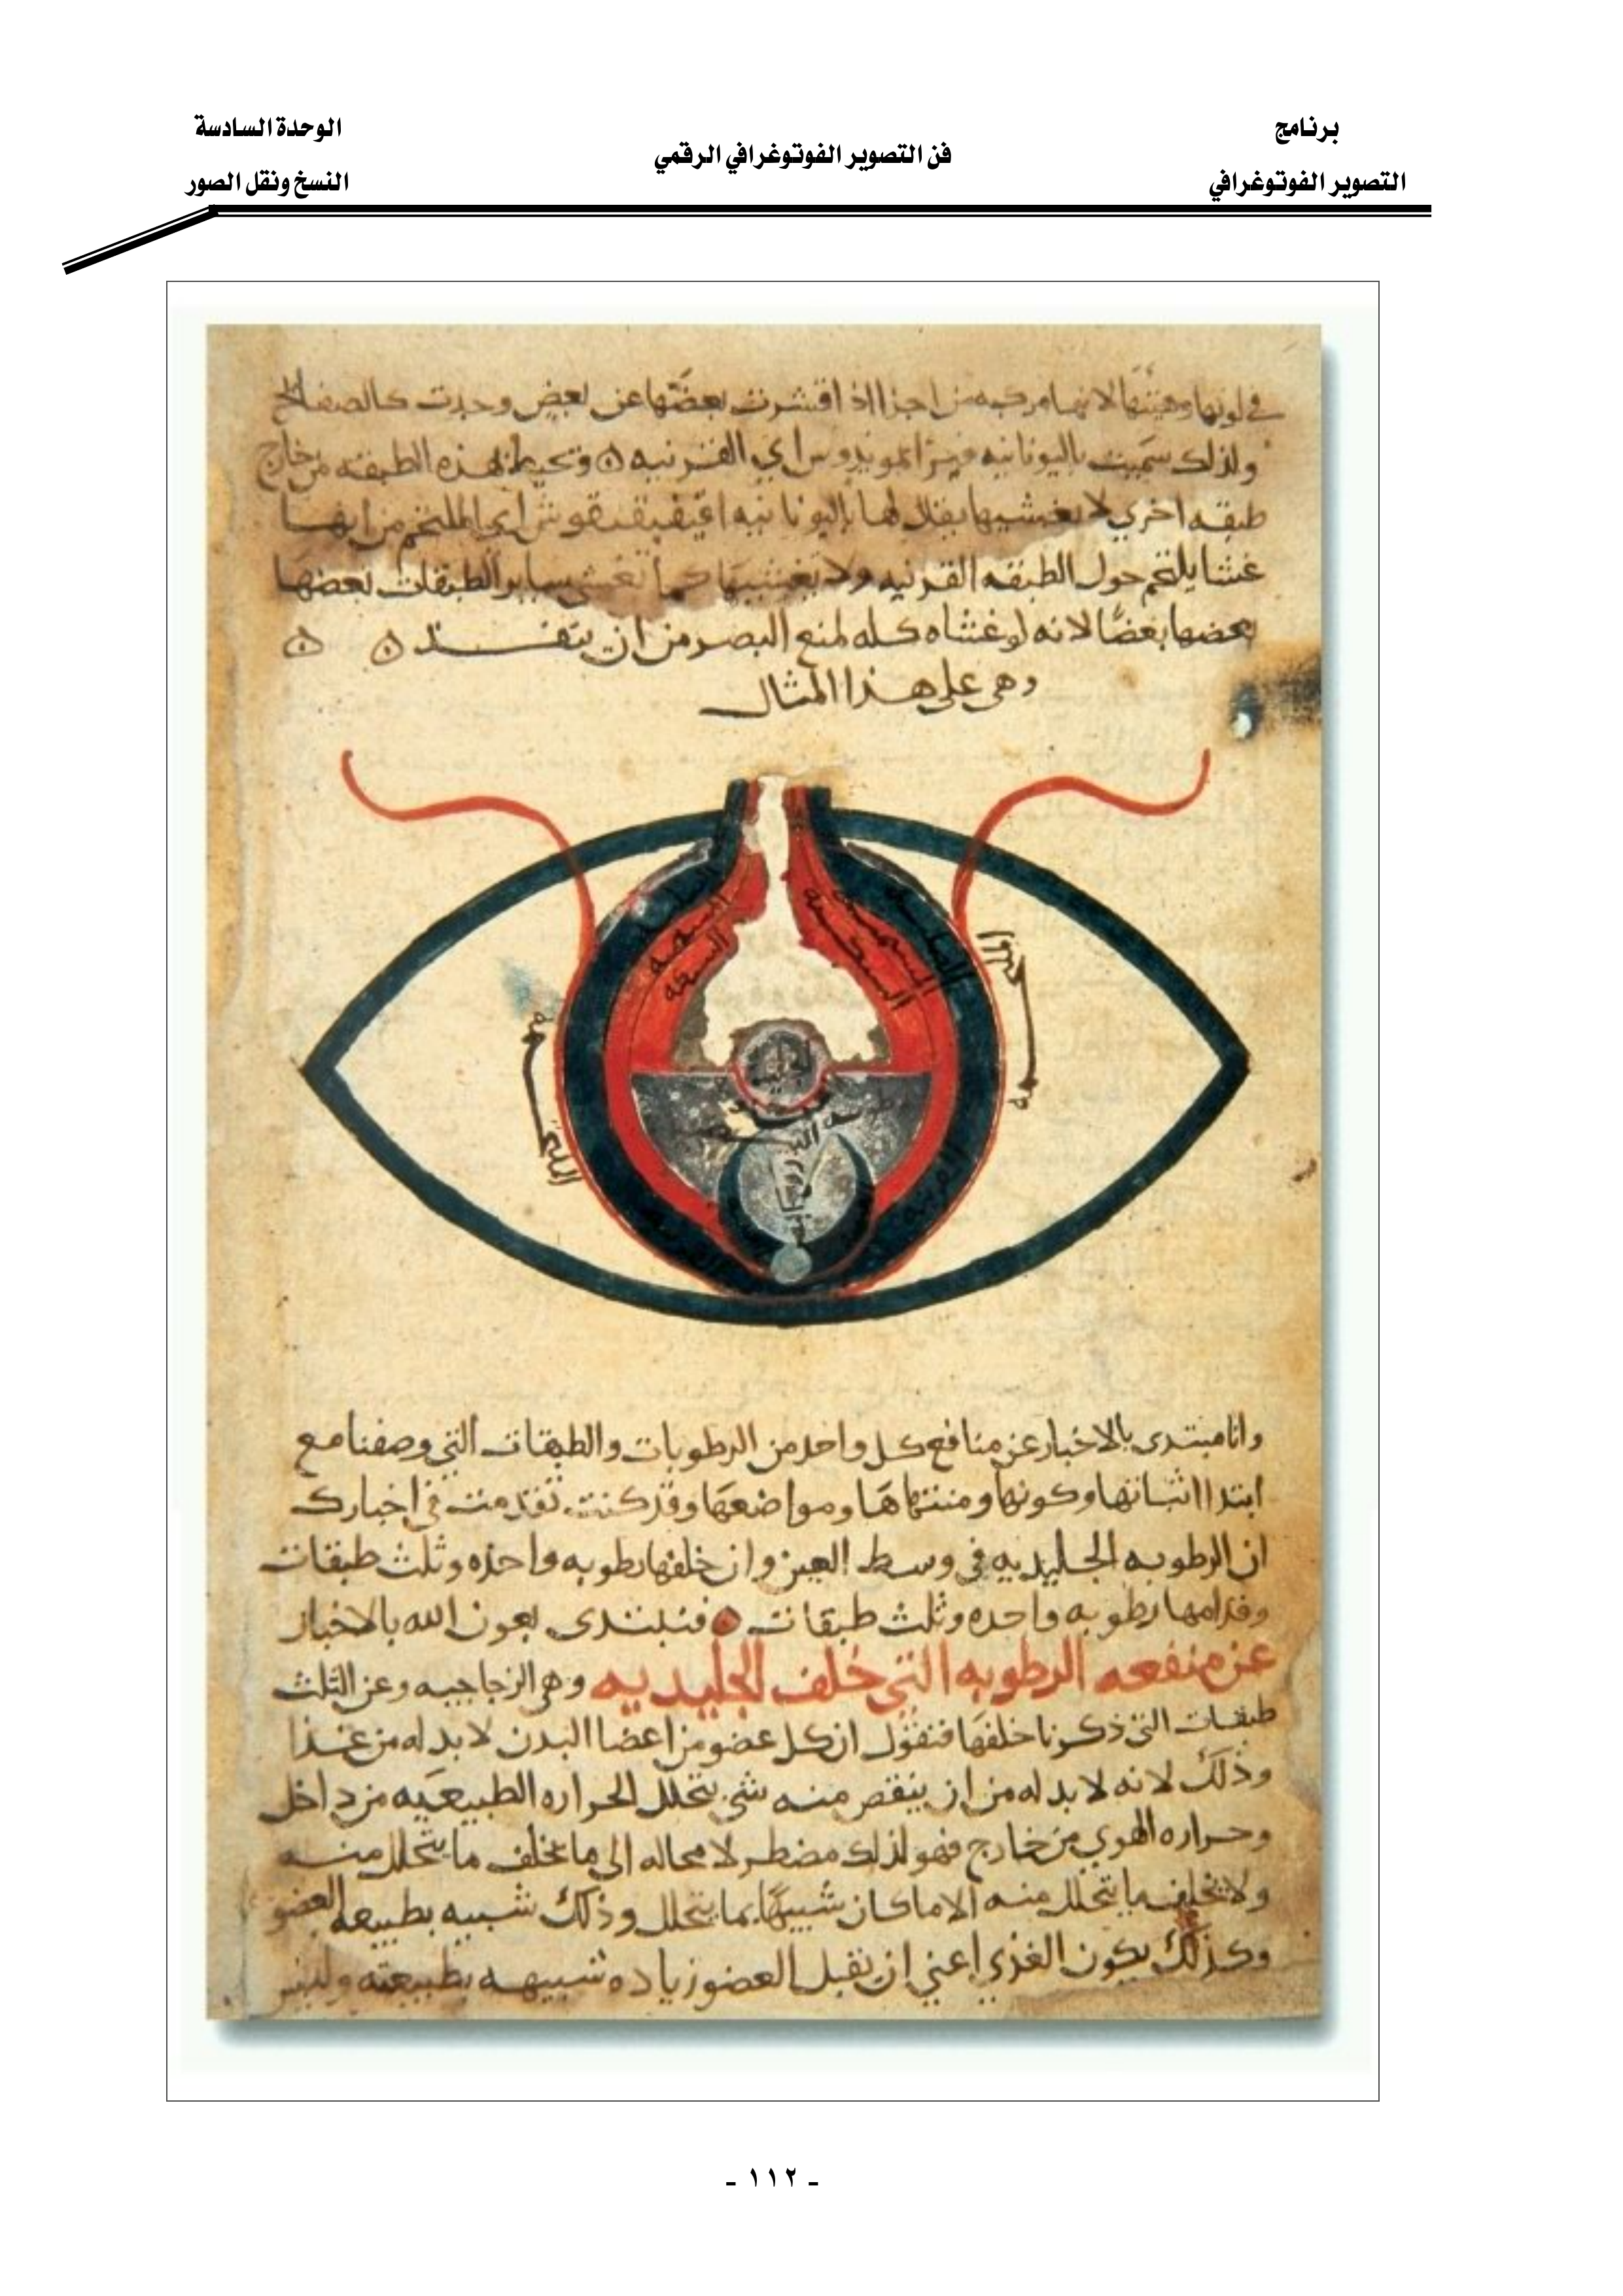 برنامج
التصوير الفوتوغرافي
فن التصوير الفوتوغرافي الرقمي
الوحدة السادسة
النسخ ونقل الصور
في لونها وهيئتها لانها مركبه من اجزا اذا اقشرت بعضها عن بعض وجدت كالصفايح
ولذلك سميت باليونانيه اي القرنيه وتحيط بهذه الطبقه من خارج
طبقه اخري لا تغشيها يقال لها باليونانيه اي الملتحم من انها
غشا يلتحم حول الطبقه القرنيه ولا يغشيها كما تغشي ساير الطبقات بعضها
بعضها بعضا لانه لو غشاه كله لمنع البصر من ان ينفــــذ
وهي علي هذا المثال
الصلبيه
المشيميه
الشبكيه
الملتحمه
القرنيه
وانا مبتدي بالاخبار عن منافع كل واحد من الرطوبات والطبقات التي وصفنا مع
ابتدا اثباتها وكونها ومنتهاها ومواضعها وقد كنت تقدمت في اخبارك
ان الرطوبه الجليديه في وسط العين وان خلفها رطوبه واحده وثلث طبقات
وقدامها رطوبه واحده وثلث طبقات فنبتدي بعون الله بالاخبار
عن منفعه الرطوبه التي خلف الجليديه وهي الزجاجيه وعن الثلث
طبقات التي ذكرنا خلفها فنقول ان كل عضو من اعضا البدن لا بد له من غذا
وذلك لانه لا بد له من ان ينقص منه شي بتحلل الحراره الطبيعيه من داخل
وحراره الهوي من خارج فهو لذلك مضطر لا محاله الي ما يخلف ما يتحلل منه
ولا يخلف ما يتحلل منه الا ما كان شبيها بما يتحلل وذلك شبيه بطبيعه العضو
وكذلك يكون الغذي اعني ان يقبل العضو زياده شبيهه بطبيعته وليس
- ١١٢ -